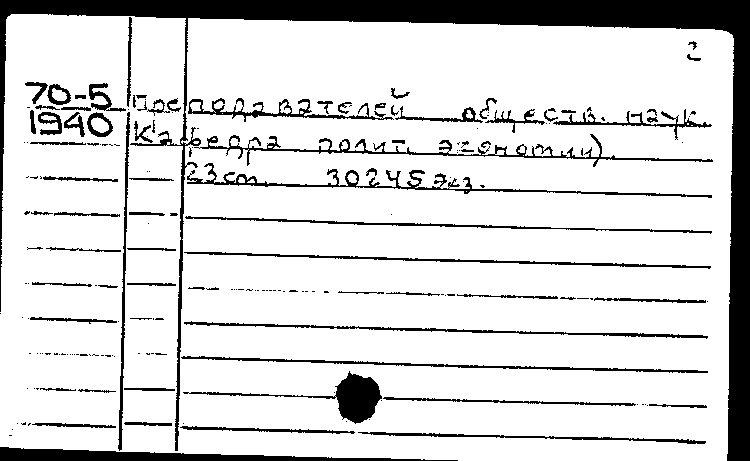 2
70-5 Преподавателей обществ. наук.
1940 Кафедра полит. экономии).
23 cm. 30245 экз.